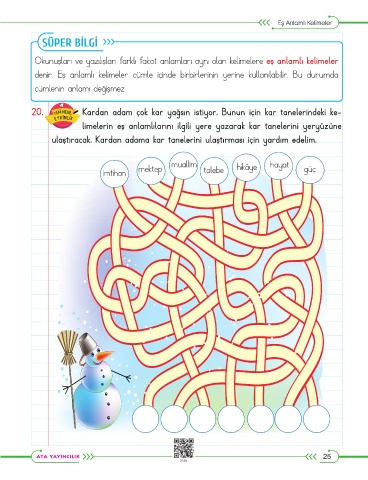 Eş Anlamlı Kelimeler
SÜPER BİLGİ
Okunuşları ve yazılışları farklı fakat anlamları aynı olan kelimelere eş anlamlı kelimeler
denir. Eş anlamlı kelimeler cümle içinde birbirlerinin yerine kullanılabilir. Bu durumda
cümlenin anlamı değişmez.
20. Kardan adam çok kar yağsın istiyor. Bunun için kar tanelerindeki ke-
limelerin eş anlamlılarını ilgili yere yazarak kar tanelerini yeryüzüne
ulaştıracak. Kardan adama kar tanelerini ulaştırması için yardım edelim.
imtihan mektep muallim talebe hikâye hayat güç
ATA YAYINCILIK
25